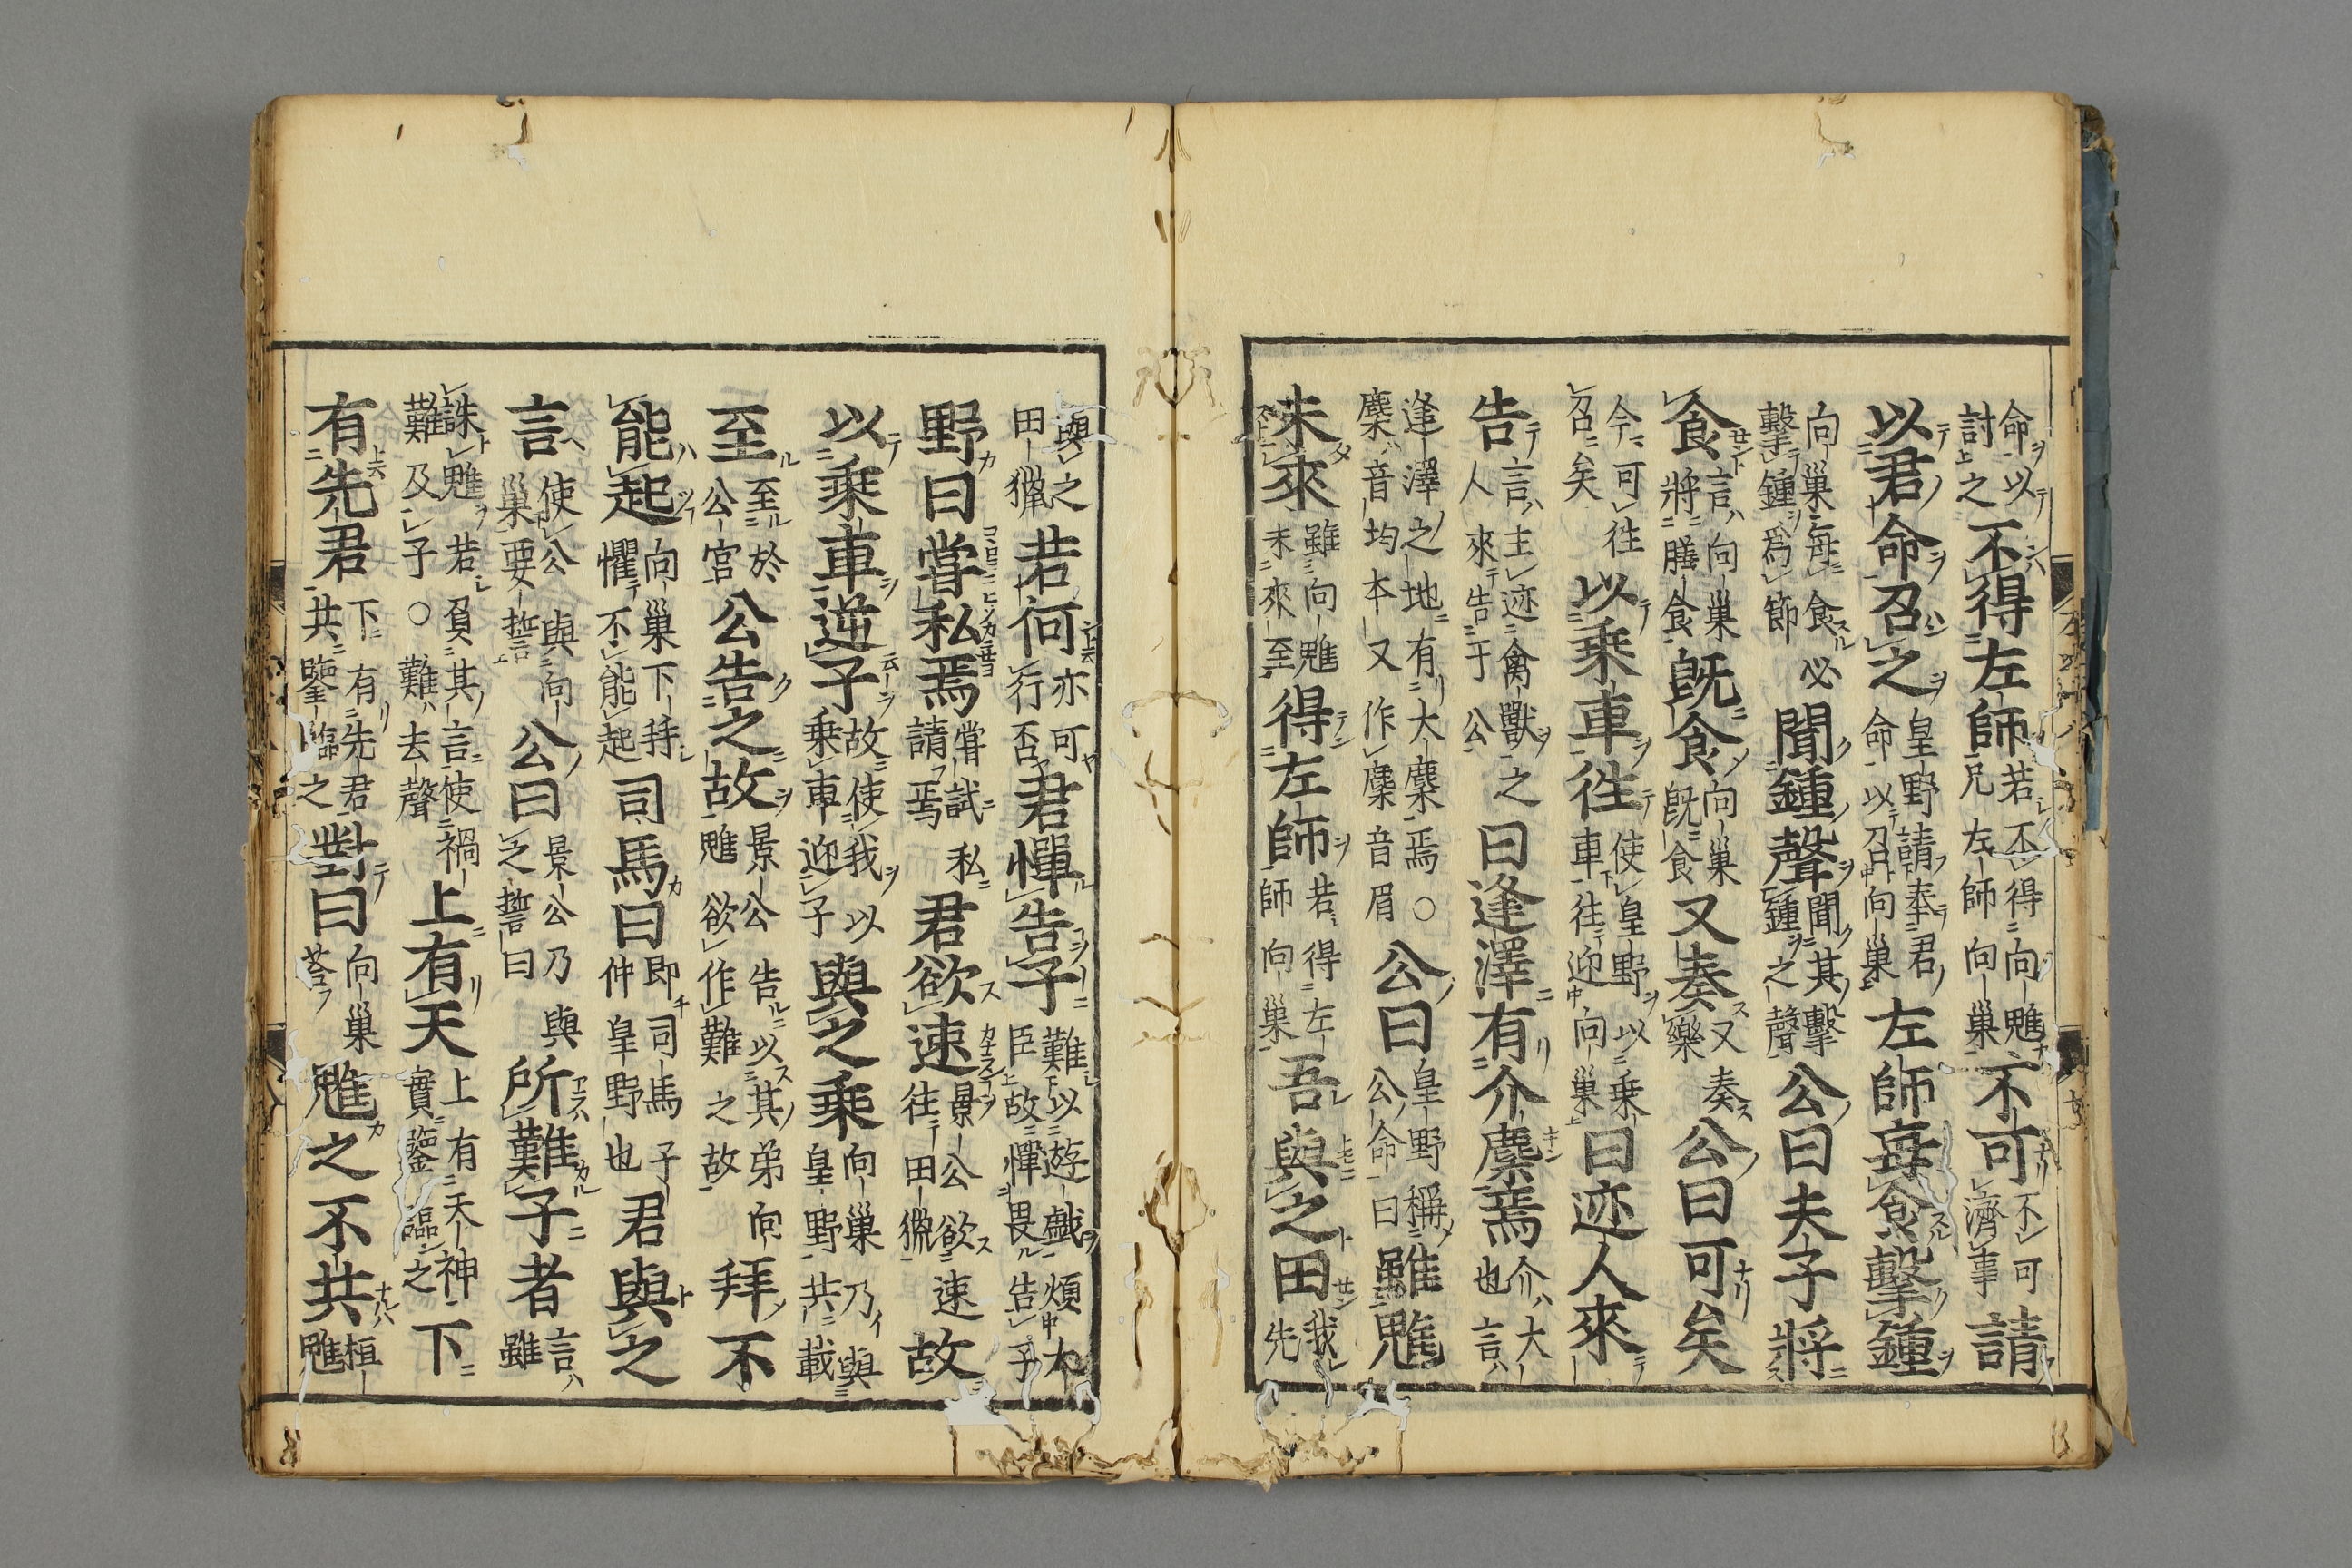 命以討之不得左師若不得向魋兄左師向巢不可不可濟事請
以君命召之皇野請奉君命以召向巢左師每食擊鍾
向巢每食必擊鍾爲節聞鍾聲聞其擊鍾之聲公曰夫子將
食言向巢將膳食既食向巢既食又奏又奏樂公曰可矣
今可往召矣以乘車往使皇野以乘車往迎向巢曰迹人來
告言主迹禽獸之人來告于公曰逢澤有介麇焉介大也言
逢澤之地有大麋焉○麇音均本又作麏音眉公曰皇野稱公命曰雖魋
未來雖向魋未來至得左師若得左師向巢吾與之田我先
與之田獵若何亦可行否君憚告子難以遊戲煩大臣故憚畏告子
野曰嘗私焉嘗試私請焉君欲速景公欲速往田獵故
以乘車逆子故使我以乘車迎子與之乘向巢乃與皇野共載
至至於公宮公告之故景公告以其弟向魋欲作難之故拜不
能起向巢下拜懼不能起司馬曰即司馬子仲皇野也君與之
言使公與向巢要誓公曰景公乃與之誓曰所難子者言雖
誅魋若負其言使禍難及子○難去聲上有天上有天神實鑒臨之下
有先君下有先君共鑒臨之對曰向巢荅魋之不共桓魋